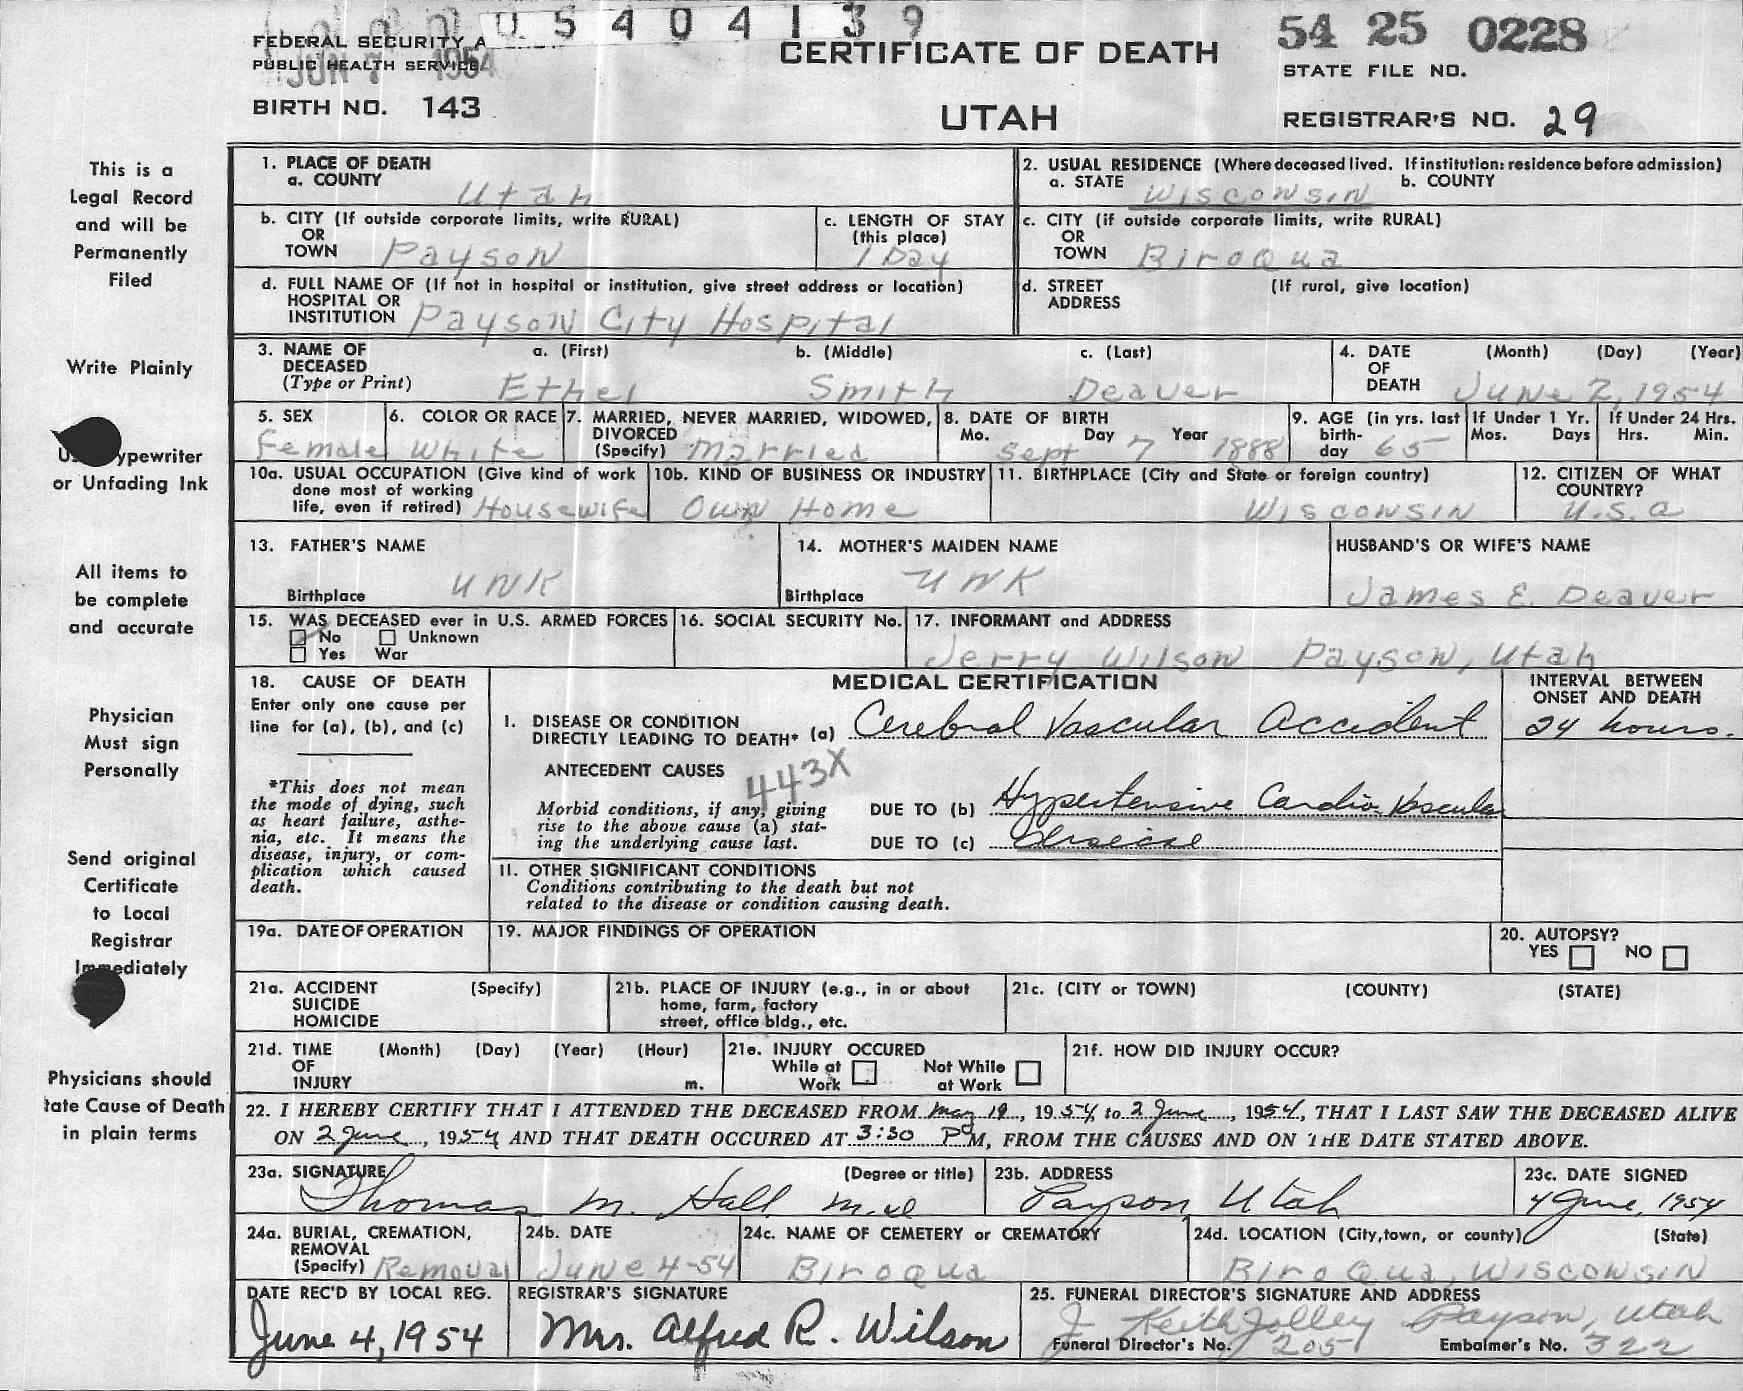 0 5 4 0 4 1 3 9
FEDERAL SECURITY A
PUBLIC HEALTH SERVICE
JUN 7 1954
BIRTH NO. 143
CERTIFICATE OF DEATH
UTAH
54 25 0228
STATE FILE NO.
REGISTRAR'S NO. 29
This is a
Legal Record
and will be
Permanently
Filed
Write Plainly
ypewriter
or Unfading Ink
All items to
be complete
and accurate
Physician
Must sign
Personally
Send original
Certificate
to Local
Registrar
Immediately
Physicians should
tate Cause of Death
in plain terms
1. PLACE OF DEATH
a. COUNTY Utah
2. USUAL RESIDENCE (Where deceased lived. If institution: residence before admission)
a. STATE Wisconsin b. COUNTY
b. CITY (If outside corporate limits, write RURAL)
OR
TOWN Payson
c. LENGTH OF STAY
(this place)
1 Day
c. CITY (if outside corporate limits, write RURAL)
OR
TOWN Biroqua
d. FULL NAME OF (If not in hospital or institution, give street address or location)
HOSPITAL OR
INSTITUTION Payson City Hospital
d. STREET (If rural, give location)
ADDRESS
3. NAME OF DECEASED (Type or Print)
a. (First) b. (Middle) c. (Last)
Ethel Smith Deaver
4. DATE OF DEATH (Month) (Day) (Year)
June 2, 1954
5. SEX
Female
6. COLOR OR RACE
White
7. MARRIED, NEVER MARRIED, WIDOWED,
DIVORCED
(Specify) Married
8. DATE OF BIRTH
Mo. Day Year
Sept 7 1888
9. AGE (in yrs. last
birth-
day 65
If Under 1 Yr.
Mos. Days
If Under 24 Hrs.
Hrs. Min.
10a. USUAL OCCUPATION (Give kind of work
done most of working
life, even if retired) Housewife
10b. KIND OF BUSINESS OR INDUSTRY
Own Home
11. BIRTHPLACE (City and State or foreign country)
Wisconsin
12. CITIZEN OF WHAT
COUNTRY?
U.S.a
13. FATHER'S NAME
UNK
Birthplace
14. MOTHER'S MAIDEN NAME
UNK
Birthplace
HUSBAND'S OR WIFE'S NAME
James E. Deaver
15. WAS DECEASED ever in U.S. ARMED FORCES
No Unknown
Yes War
16. SOCIAL SECURITY No.
17. INFORMANT and ADDRESS
Jerry Wilson Payson, Utah
18. CAUSE OF DEATH
Enter only one cause per
line for (a), (b), and (c)
*This does not mean
the mode of dying, such
as heart failure, asthe-
nia, etc. It means the
disease, injury, or com-
plication which caused
death.
MEDICAL CERTIFICATION
INTERVAL BETWEEN
ONSET AND DEATH
I. DISEASE OR CONDITION
DIRECTLY LEADING TO DEATH* (a) Cerebral Vascular Accident
24 hours.
ANTECEDENT CAUSES
443X
Morbid conditions, if any, giving
rise to the above cause (a) stat-
ing the underlying cause last.
DUE TO (b) Hypertensive Cardio-Vascular
DUE TO (c) disease
II. OTHER SIGNIFICANT CONDITIONS
Conditions contributing to the death but not
related to the disease or condition causing death.
19a. DATE OF OPERATION
19. MAJOR FINDINGS OF OPERATION
20. AUTOPSY?
YES NO
21a. ACCIDENT (Specify)
SUICIDE
HOMICIDE
21b. PLACE OF INJURY (e.g., in or about
home, farm, factory
street, office bldg., etc.
21c. (CITY or TOWN) (COUNTY) (STATE)
21d. TIME (Month) (Day) (Year) (Hour)
OF
INJURY m.
21e. INJURY OCCURED
While at Work Not While at Work
21f. HOW DID INJURY OCCUR?
22. I HEREBY CERTIFY THAT I ATTENDED THE DECEASED FROM May 19, 1954 to 2 June, 1954, THAT I LAST SAW THE DECEASED ALIVE
ON 2 June, 1954 AND THAT DEATH OCCURED AT 3:30 P M, FROM THE CAUSES AND ON THE DATE STATED ABOVE.
23a. SIGNATURE (Degree or title)
Thomas M. Hall M.D
23b. ADDRESS
Payson Utah
23c. DATE SIGNED
4 June, 1954
24a. BURIAL, CREMATION,
REMOVAL
(Specify) Removal
24b. DATE
June 4-54
24c. NAME OF CEMETERY or CREMATORY
Biroqua
24d. LOCATION (City, town, or county) (State)
Biroqua, Wisconsin
DATE REC'D BY LOCAL REG.
June 4, 1954
REGISTRAR'S SIGNATURE
Mrs. Alfred R. Wilson
25. FUNERAL DIRECTOR'S SIGNATURE AND ADDRESS
J. Keith Jolley Payson, Utah
Funeral Director's No. 205 Embalmer's No. 322